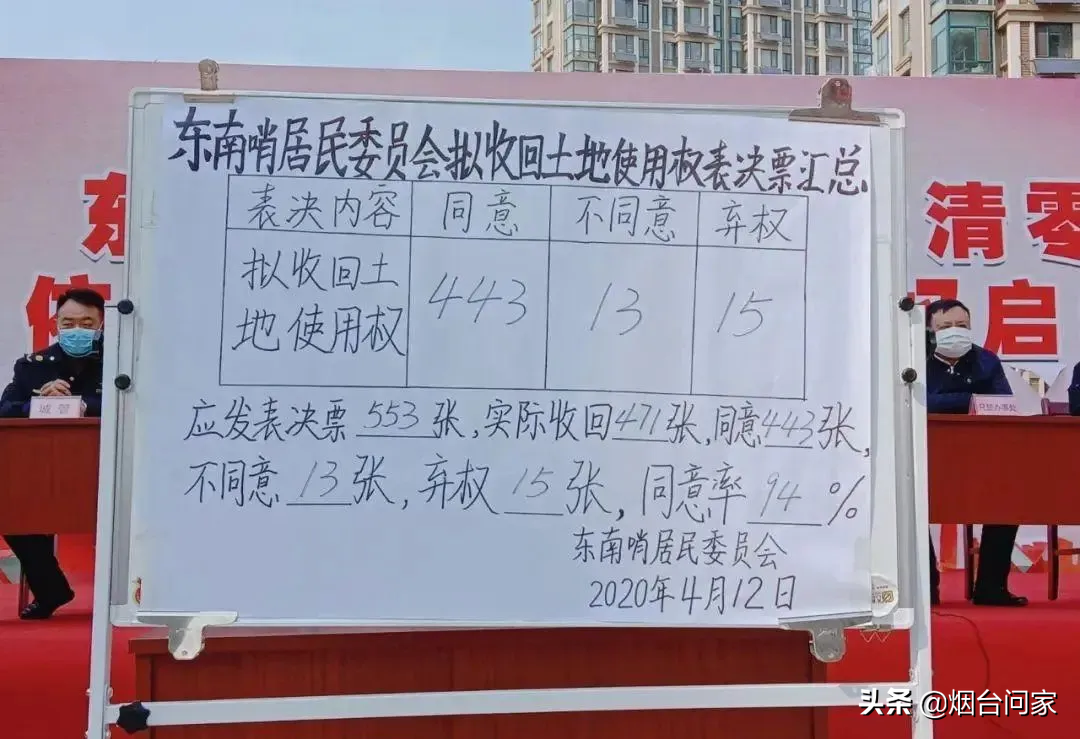 东南哨居民委员会拟收回土地使用权表决票汇总
表决内容 同意 不同意 弃权
拟收回土地使用权 443 13 15
应发表决票 553 张,实际收回 471 张,同意 443 张,
不同意 13 张,弃权 15 张,同意率 94 %
东南哨居民委员会
2020年4月12日
东
清零
启
城管
头条 @烟台问家